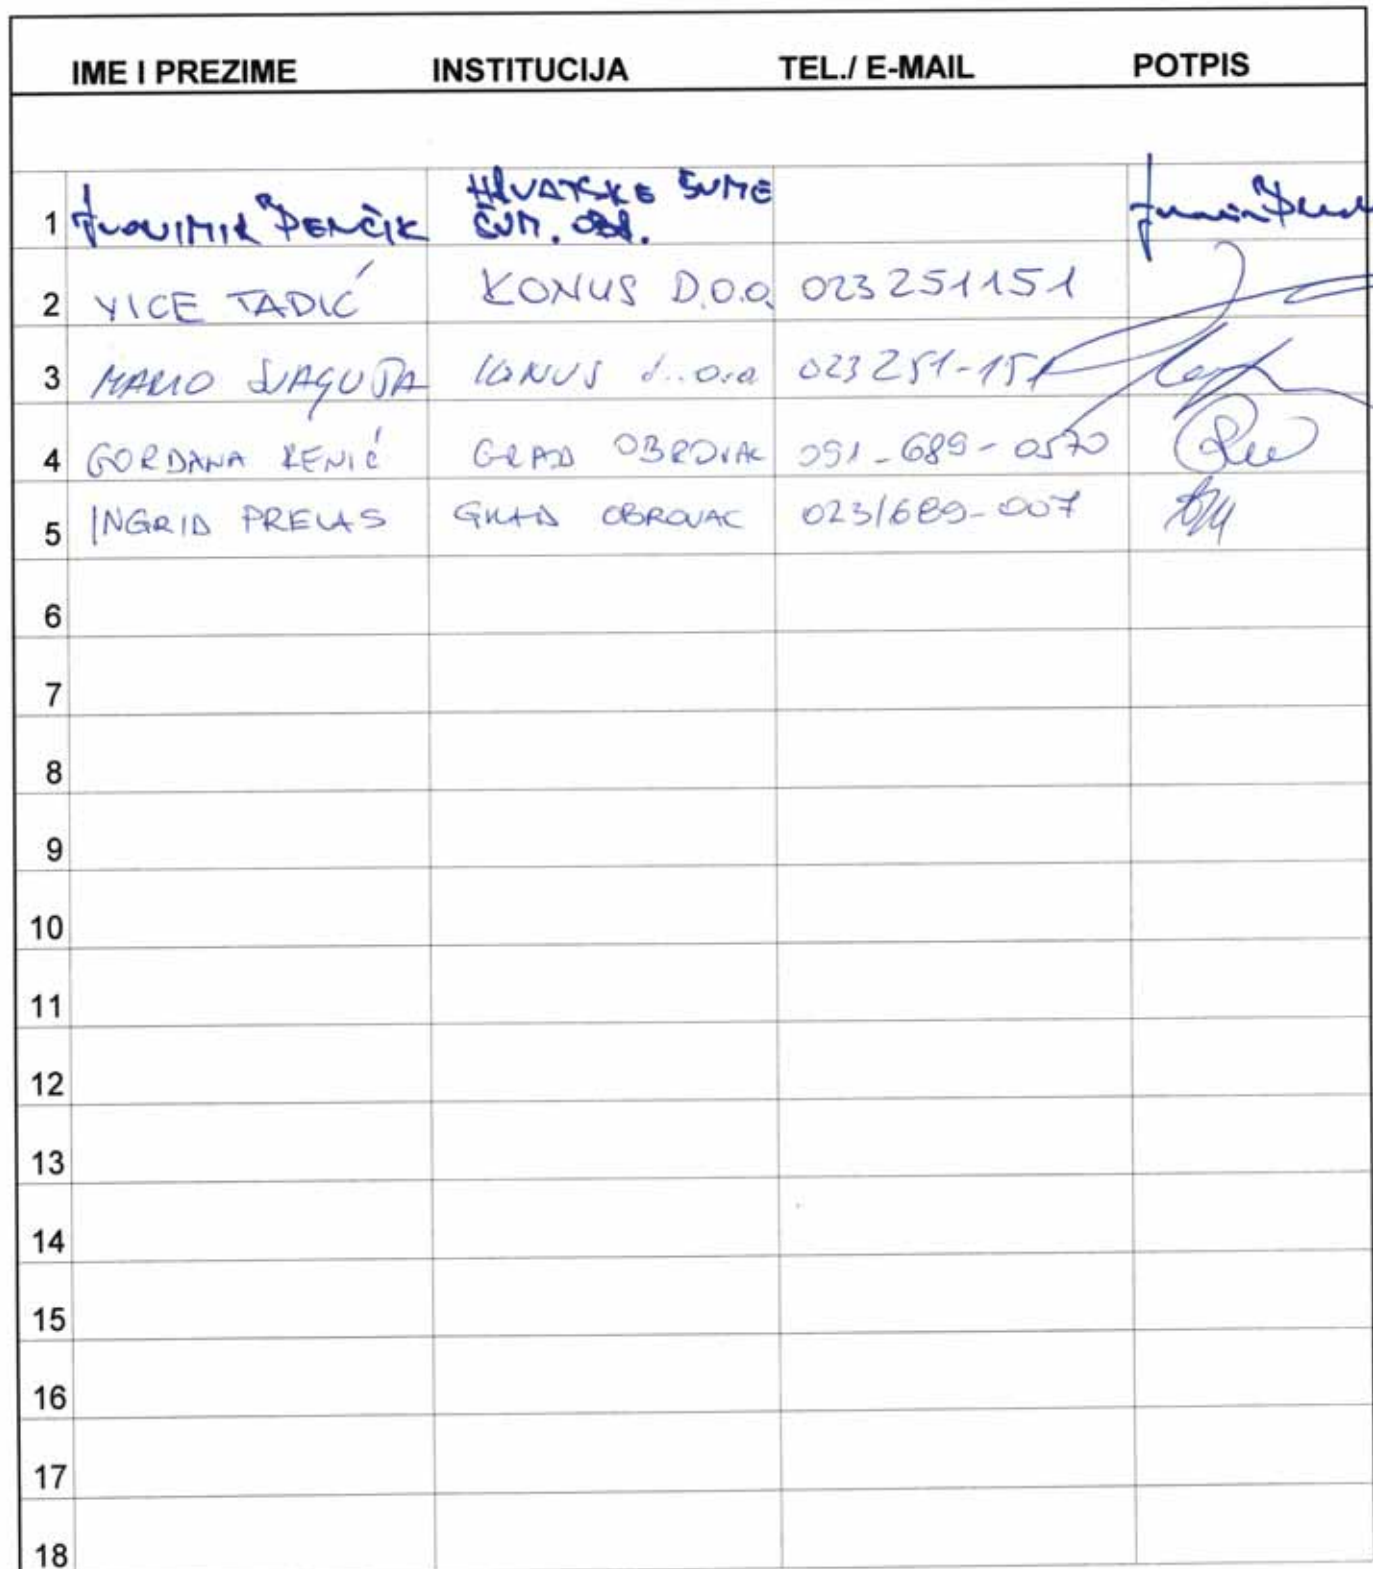 IME I PREZIME INSTITUCIJA TEL./ E-MAIL POTPIS
1 HRVATSKE ŠUME
ŠUM.
2 VICE TADIĆ KONUS D.O.O. 023 251151
3 MARIO KONUS d.o.o 023 251-151
4 GORDANA GRAD OBROVAC 091-689-0570
5 INGRID PRELAS GRAD OBROVAC 023/689-007
6
7
8
9
10
11
12
13
14
15
16
17
18